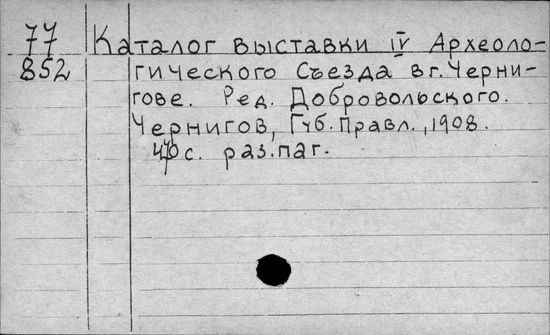 77 Каталог выставки IV Археоло-
852 гического Съезда в г. Черни-
гове. Ред. Добровольского.
Чернигов, Губ. Правл., 1908.
с. раз. паг.